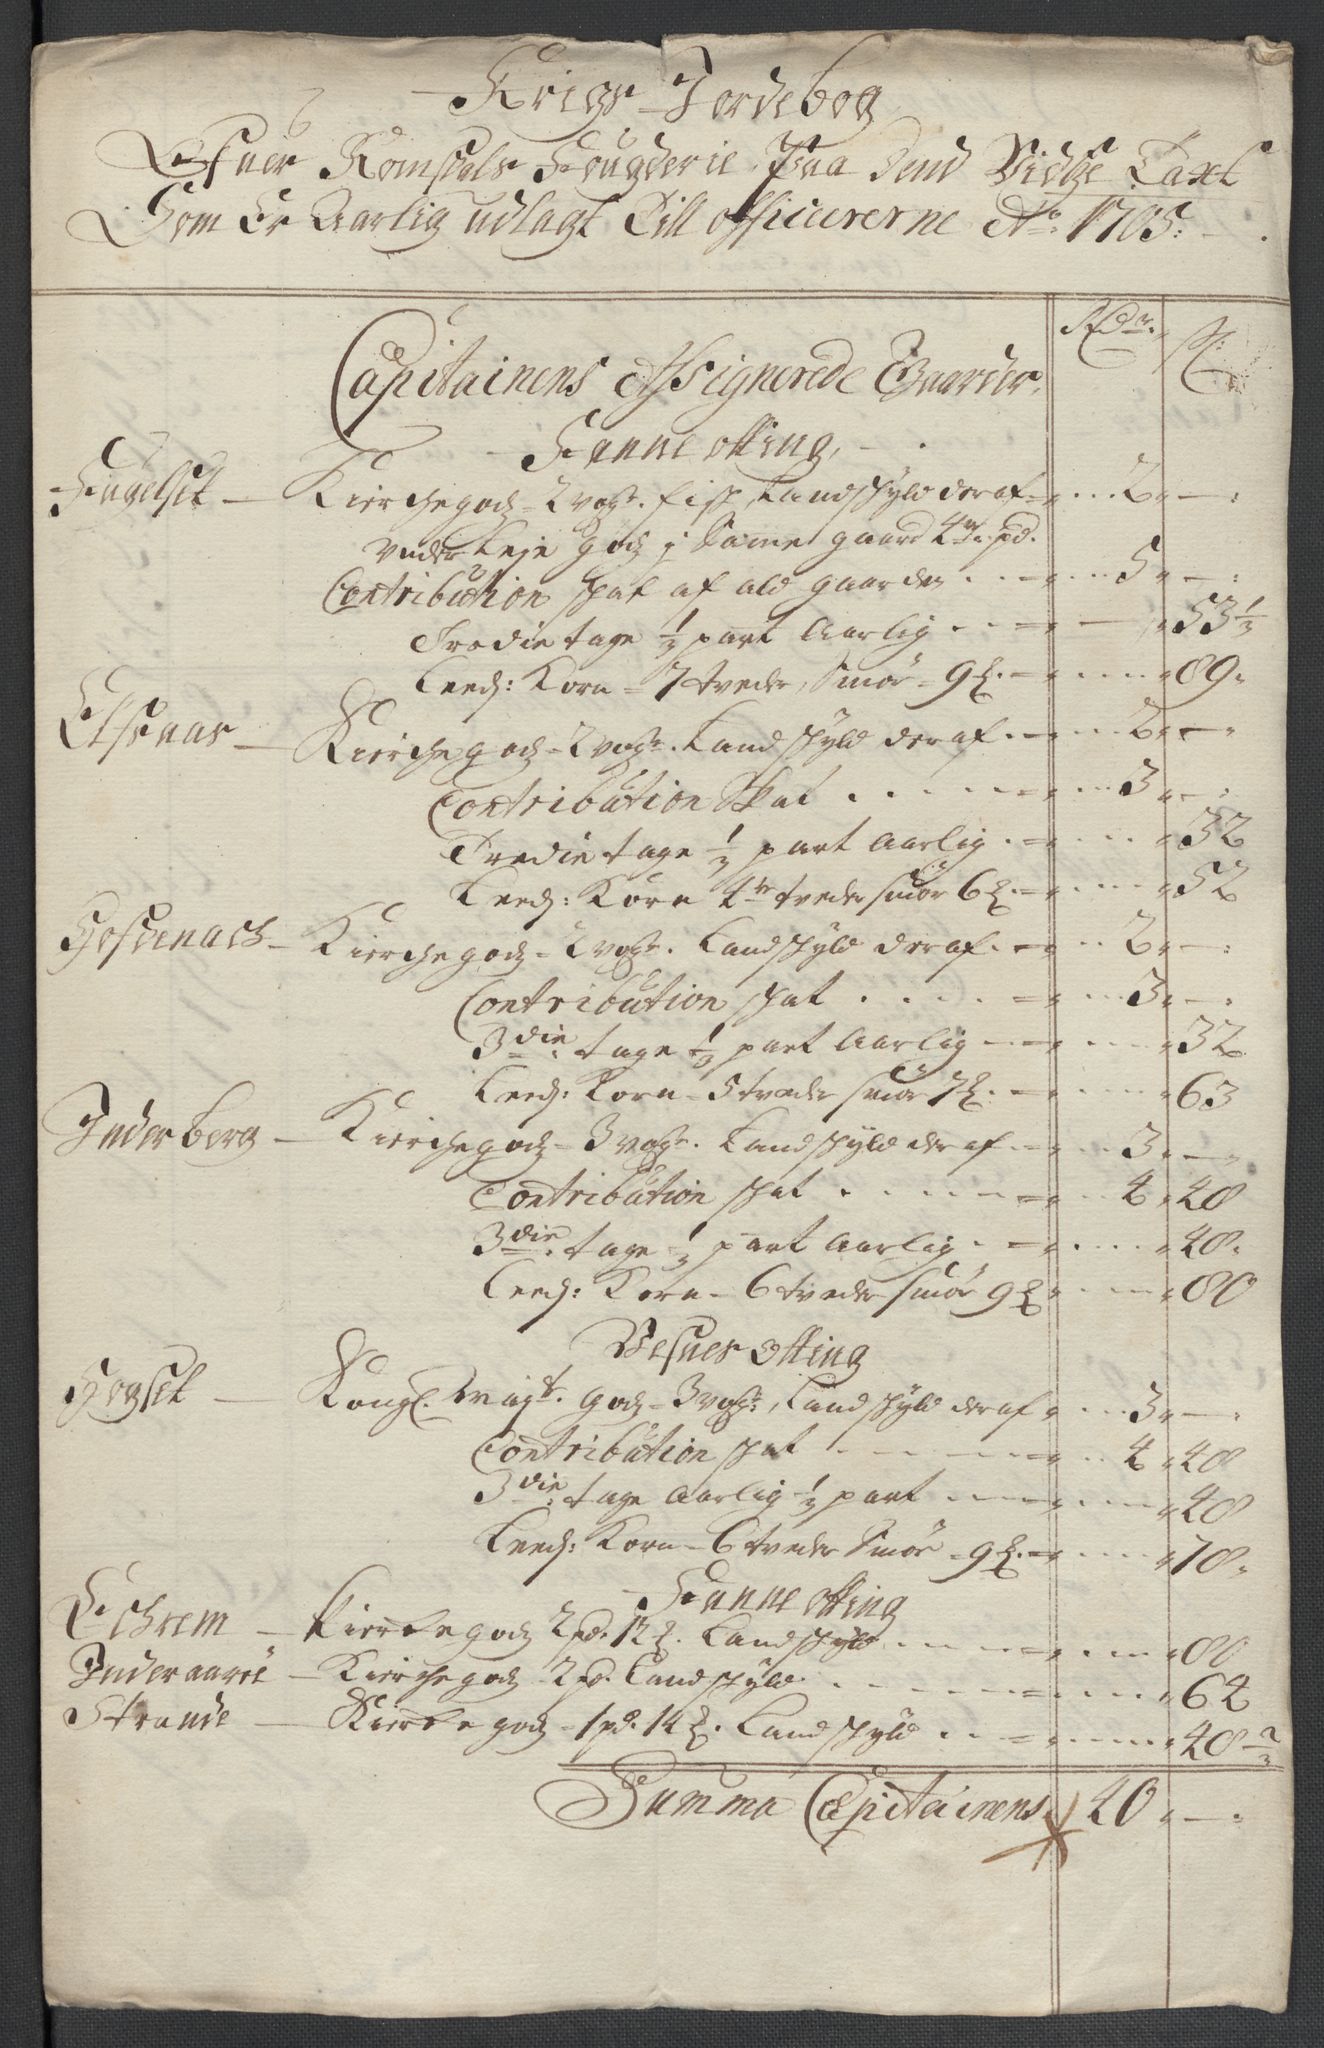 Kriegs Jordebog
Ofver Romsdals Fougderie Paa Dend Vidse Taxt
Som Er Aarlig udlagt Till officererne Ao: 1705:
Rdr. ß
Capitainens Assignerede Gaarder
Fanne otting
Fugelset — Kierchegodz - 2 vog: fisk, Landskyld deraf 2 —
under Leje godz j Samme gaard 4 mr. pd.
Contribution skat af ald gaarden 5 —
Tredie tage 1/3 part Aarlig — 53 1/3
Leed: Korn - 7 tveder, Smør - 9 ℔. 89
Kierchegodz - 2 vog: Landskyld deraf 2 —
Contribution Skat 3 —
Tredie tage 1/3 part Aarlig 32
Leed: Korn 4 tveder smør 6 ℔. 52
Kierchegodz - 2 vog: Landskyld deraf 2 —
Contribution skat 3 —
3die tage 1/3 part Aarlig 32
Leed: Korn - 5 tveder smør 7 ℔. 63
Inderberg — Kierchegodz - 3 vog: Landskyld deraf 3 —
Contribution skat 4 48
3die tage 1/3 part Aarlig 48
Leed: Korn - 6 tveder smør 9 ℔ 80
Vefnes Otting
Hogset — Kongl. Mayt. godz - 3 vog: Landskyld deraf 3 —
Contribution skat 4 48
3die tage Aarlig 1/3 part 48
Leed: Korn - 6 tveder Smør - 9 ℔. 78
Fanne otting
Echrem — Kierke godz 2 pd. 12 ℔. Landskyld 80
Inderaarøe — Kierchegodz - 2 pd. Landskyld 64
Strande — Kierke godz - 1 pd. 14 ℔. Landskyld 48 2/3
Summa Capitainens 40 —